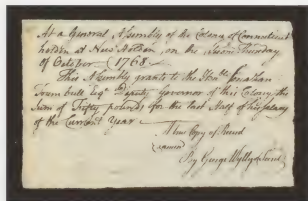 At a General Assembly of the Colony of Connecticut
holden at New Haven on the Second Thursday
of October 1768
This Assembly grants to the Honble Jonathan
Trumbull Esqr Deputy Governor of this Colony the
Sum of Fifty pounds for the last Half of his Salary
of the Current Year
A true Copy of Record
Examind
By George Wyllys Secret